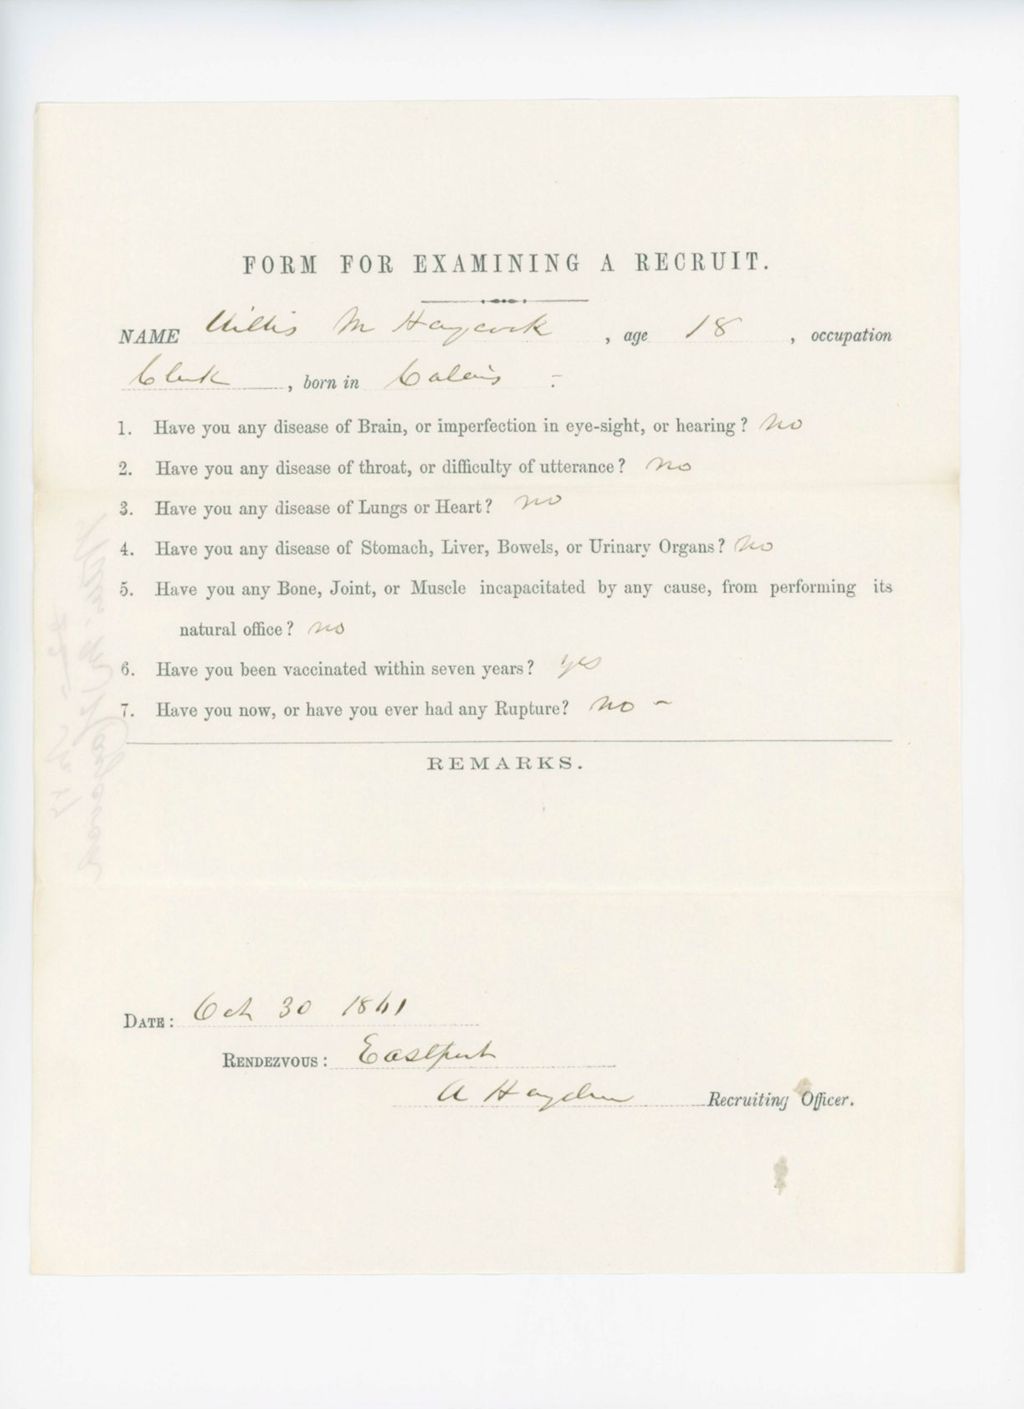 FORM FOR EXAMINING A RECRUIT.
NAME Willis M Haycock , age 18 , occupation
Clerk , born in Calais
1. Have you any disease of Brain, or imperfection in eye-sight, or hearing? No
2. Have you any disease of throat, or difficulty of utterance? No
3. Have you any disease of Lungs or Heart? no
4. Have you any disease of Stomach, Liver, Bowels, or Urinary Organs? No
5. Have you any Bone, Joint, or Muscle incapacitated by any cause, from performing its
natural office? no
6. Have you been vaccinated within seven years? yes
7. Have you now, or have you ever had any Rupture? No -
REMARKS.
DATE: Oct 30 1861
RENDEZVOUS: Eastport
A Hayden Recruiting Officer.